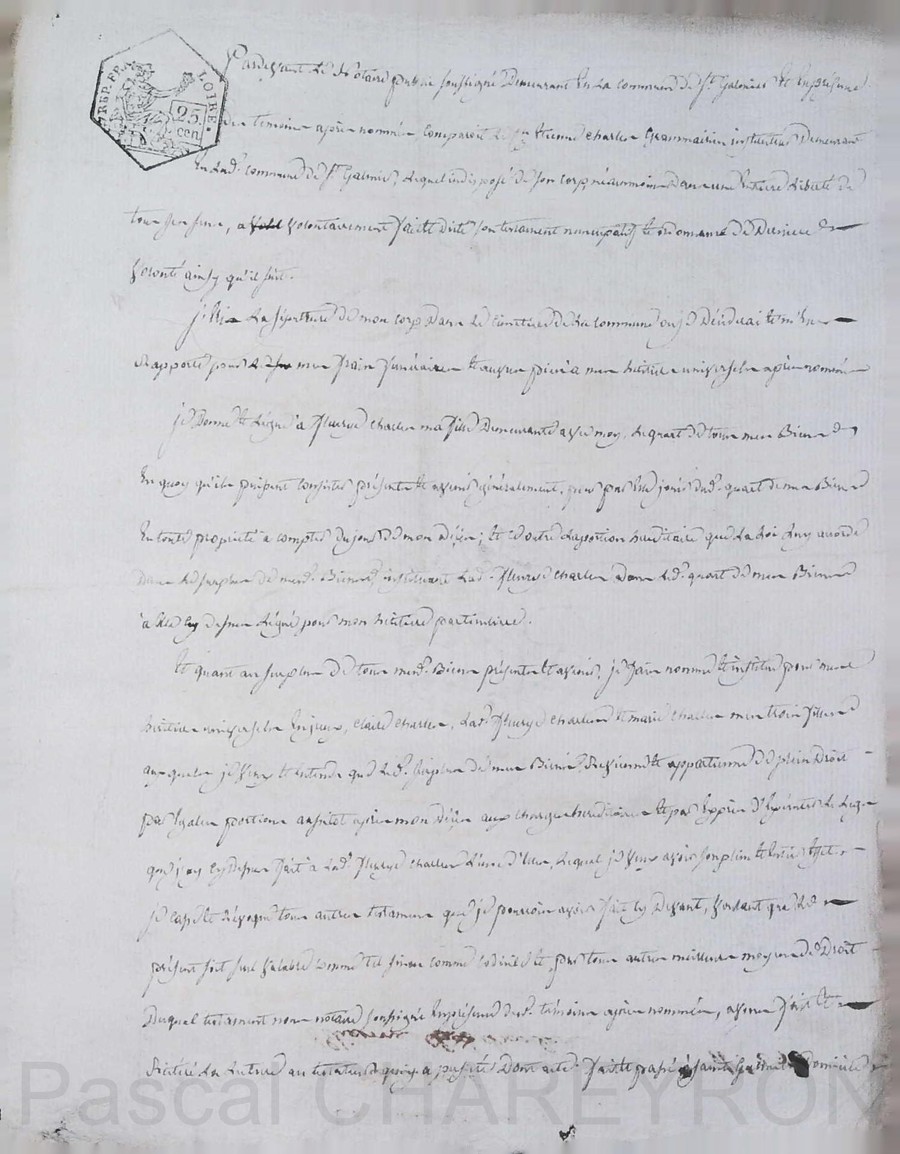 REP. FR.
LOIRE.
25. cen
Pardevant Le Notaire public soussigné Demeurant En La commune de St. Galmier Et En présence
des temoins après nommés Comparoit le Cen Etienne Charles Grammairien instituteur Demeurant
En Lad. Commune de St. Galmier, Lequel indisposé de son corps, néanmoins Dans une Entiere Liberté de
tous ses sens, a volontairement fait et dicté son testament nuncupatif et ordonnance De Derniere
volonté ainsy qu'il suit.
La sepulture de mon corps Dans Le Cimetiere de La commune ou je Décéderai Et m'en
Rapporte pour mes frais funéraires Et œuvres pies à mes héritieres universelles après nommées
je Donne Et Légue à Fleurye Charles ma fille Demeurante avec moy, Le quart De tous mes Biens
En quoy qu'ils puissent Consister présents Et avenir généralement, pour par Elle jouir dud. quart de mes Biens
En toute propriété a compter du jour de mon Décès; Et ce outre La portion héréditaire que La Loi Luy accorde
Dans Le surplus de mesd. Biens, instituant Lad. Fleurye Charles Dans Led. quart de mes Biens
à Elle Cy dessus Légué pour mon héritiere particuliere.
Et quant au surplus De tous mesd. Biens présents Et avenir, je fais nomme Et institue pour mes
héritieres universelles Claire Charles, Lad. Fleurye Charles Et Marie Charles mes trois filles
auxquelles je veux Et Entends que Led. surplus de mes Biens, Revienne Et appartienne De plein Droit
par Egales portions aussitôt après mon Décès aux charges héréditaires Et par Exprès D'Exécuter Le Legs
que j'ay Cy dessus fait à Lad. Fleurye Charles L'une D'elles, Lequel je veux avoir son plein Et Entier Effet.
je Casse Et Révoque tous autres testaments que je pourrois avoir fait Cy Devant, voulant que Le
présent soit seul valable Comme tel sinon comme Codicile Et par tous autres meilleurs moyens De Droit
Duquel testament nous notaire soussigné En présence Desd. témoins après nommés, avons fait Et
Réitéré La Lecture au testateur qui y a persisté Dont acte. fait Et passé à Saint Galmier Domicile
Pascal CHAREYRON